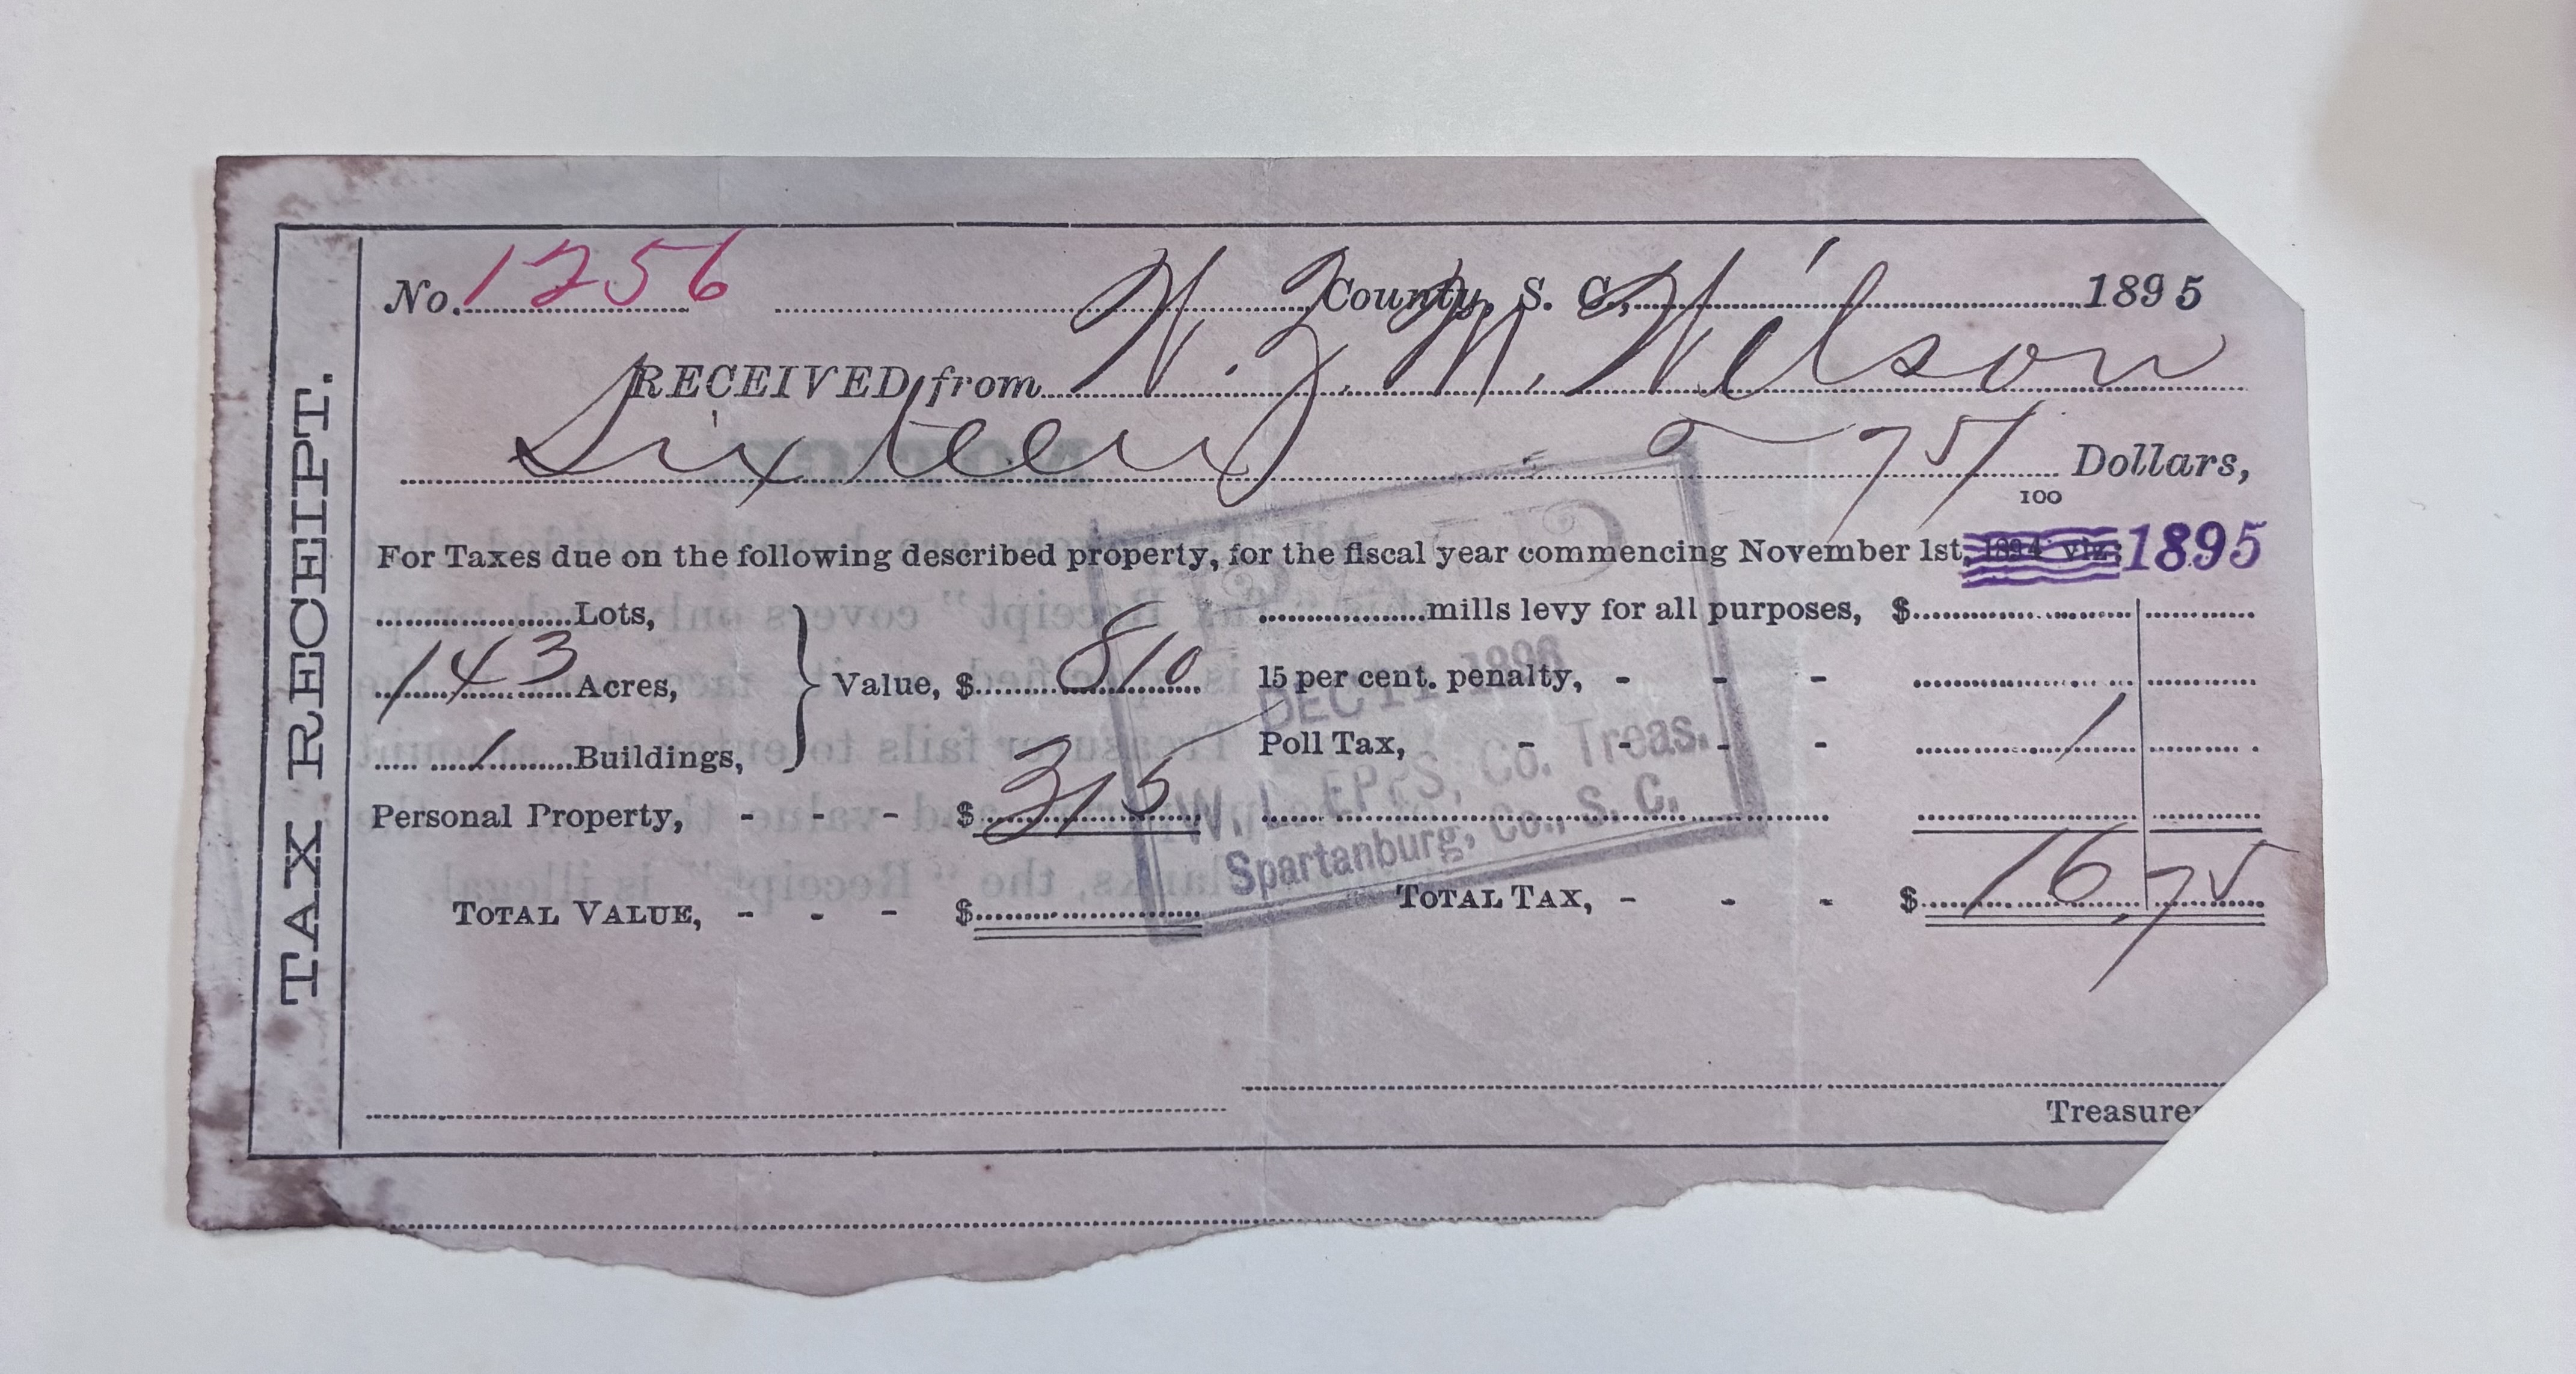 TAX RECEIPT.
No. 1256 County, S. C., 1895
RECEIVED from W. J. M. Wilson
Sixteen 75/100 Dollars,
For Taxes due on the following described property, for the fiscal year commencing November 1st, 1894 viz: 1895
Lots,
143 Acres,
1 Buildings,
Value, $ 810
Personal Property, - - - $ 315
TOTAL VALUE, - - - $
mills levy for all purposes, $
15 per cent. penalty, - - -
Poll Tax, - - - - 1
TOTAL TAX, - - - $ 16,75
DEC 11 1896
W. L. EPPS, Co. Treas.
Spartanburg, Co., S. C.
Treasurer